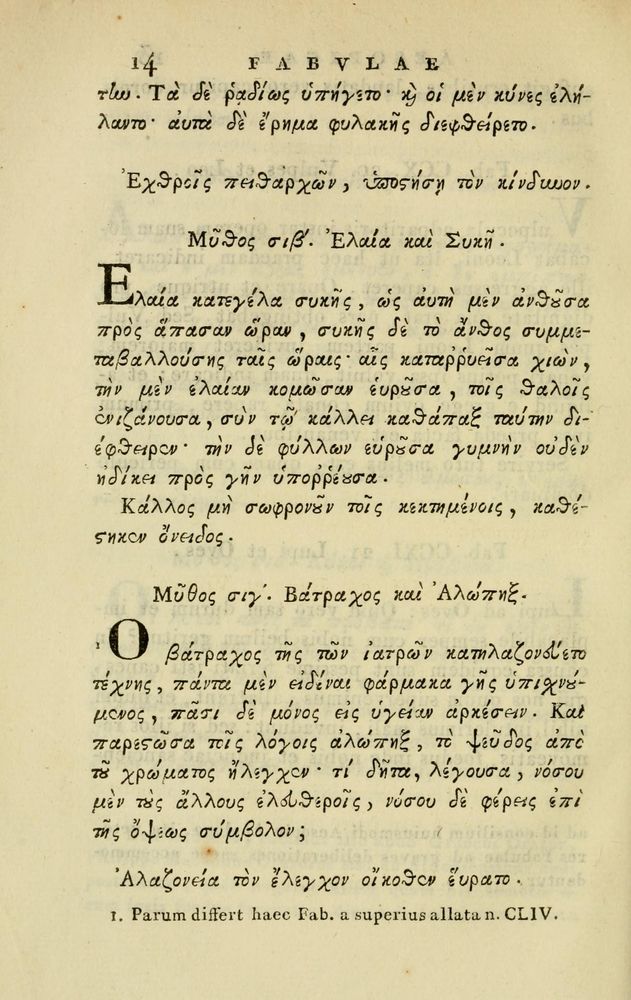 14 FABVLAE
την. Τὰ δὲ ῥαδίως ὑπήγετο· καὶ οἱ μὲν κύνες ἐλή-
λαντο· ἀυτὰ δὲ ἔρημα φυλακῆς διεφθείρετο.
Ἐχθροῖς πειθαρχῶν, ὑποστήσῃ τὸν κίνδυνον.
Μῦθος σιβ΄. Ἐλαία καὶ Συκῆ.
Ελαία κατεγέλα συκῆς, ὡς ἀυτὴ μὲν ἀνθοῦσα
πρὸς ἅπασαν ὥραν, συκῆς δὲ τὸ ἄνθος συμμε-
ταβαλλούσης ταῖς ὥραις· αἷς καταῤῥυεῖσα χιὼν,
τὴν μὲν ἐλαίαν κομῶσαν ἑυροῦσα, τοῖς θαλοῖς
ἐνιζάνουσα, σὺν τῷ κάλλει καθάπαξ ταύτην δι-
έφθειρεν· τὴν δὲ φύλλων εὑροῦσα γυμνὴν οὐδὲν
ἠδίκει πρὸς γῆν ὑποῤῥέουσα.
Κάλλος μὴ σωφρονοῦν τοῖς κεκτημένοις, καθέ-
στηκεν ὄνειδος.
Μῦθος σιγ΄. Βάτραχος καὶ Ἀλώπηξ.
¹ Ὁ βάτραχος τῆς τῶν ἰατρῶν κατηλαζονεύετο
τέχνης, πάντα μὲν εἰδέναι φάρμακα γῆς ὑπισχνού-
μενος, πᾶσι δὲ μόνος εἰς ὑγείαν ἀρκέσειν. Καὶ
παρεστῶσα τοῖς λόγοις ἀλώπηξ, τὸ ψεῦδος ἀπὸ
τοῦ χρώματος ἤλεγχεν· τί δῆτα, λέγουσα, νόσου
μὲν τοὺς ἄλλους ἐλευθεροῖς, νόσου δὲ φέρεις ἐπὶ
τῆς ὄψεως σύμβολον;
Ἀλαζονεία τὸν ἔλεγχον οἴκοθεν ἕυρατο.
1. Parum differt haec Fab. a superius allata n. CLIV.